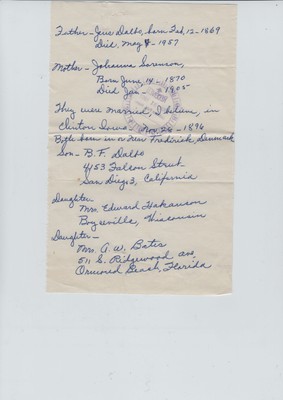 Father - Jens Dalbo, born Feb. 12 - 1869
Died, May 8 - 1957
Mother - Johanna Sorenson,
Born June, 14 - 1870
Died Jan - 1905
They were married, I believe, in
Clinton Iowa Nov. 26 - 1896
Both born in or near Frederick, Denmark
Son - B. F. Dalbo
4153 Falcon Street
San Diego 3, California
Daughter
Mrs. Edward Hakanson
Boyceville, Wisconsin
Daughter -
Mrs. A. W. Bates
511 S. Ridgewood Ave,
Ormond Beach, Florida